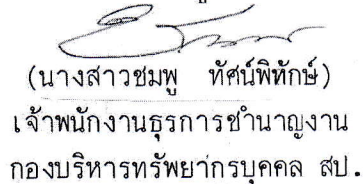 (นางสาวชมพู ทัศน์พิทักษ์)
เจ้าพนักงานธุรการชำนาญงาน
กองบริหารทรัพยากรบุคคล สป.